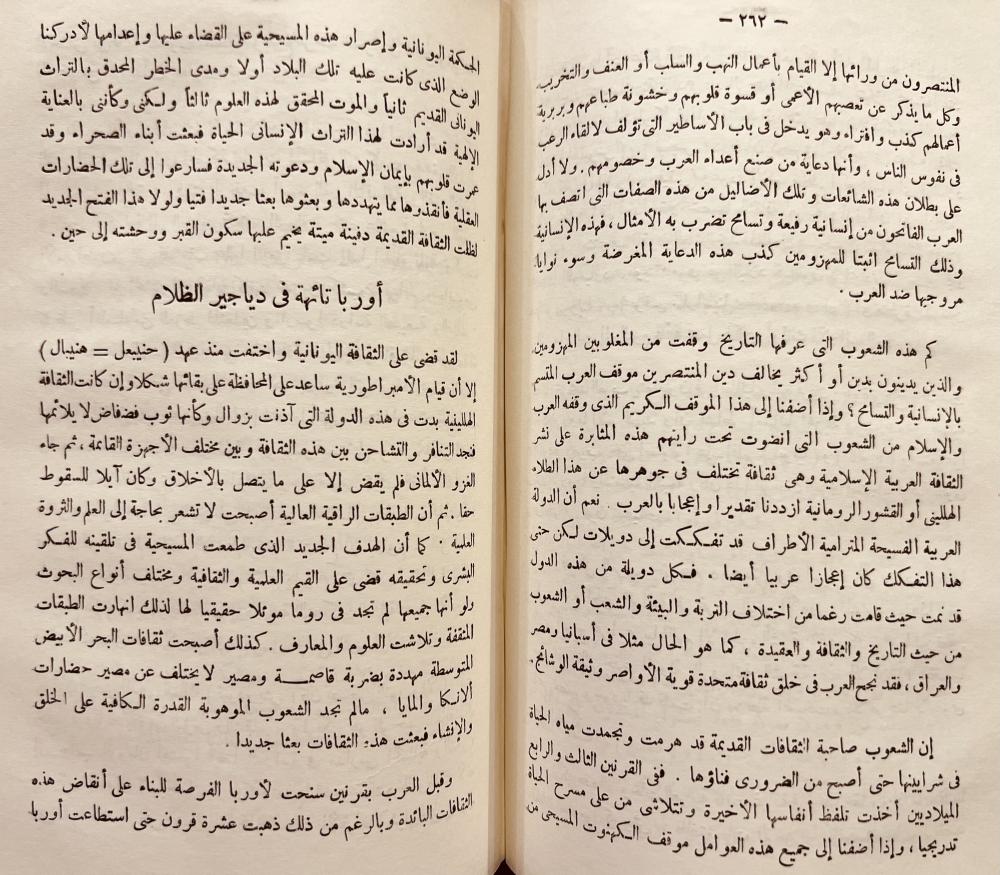 — ٢٦٢ —
المنتصرون من ورائها إلا القيام بأعمال النهب والسلب أو العنف والتخريب.
وكل ما يذكر عن تعصبهم الأعمى أو قسوة قلوبهم وخشونة طباعهم وبربرية
أعمالهم كذب وافتراء وهو يدخل فى باب الأساطير التى تؤلف لالقاء الرعب
فى نفوس الناس ، وأنها دعاية من صنع أعداء العرب وخصومهم . ولا أدل
على بطلان هذه الشائعات وتلك الأضاليل من هذه الصفات التى اتصف بها
العرب الفاتحون من إنسانية رفيعة وتسامح تضرب به الأمثال ، فهذه الإنسانية
وذلك التسامح اثبتا للمهزومين كذب هذه الدعاية المغرضة وسوء نوايا
مروجها ضد العرب .
كم هذه الشعوب التى عرفها التاريخ وقفت من المغلوبين المهزومين
والذين يدينون بدين أو أكثر يخالف دين المنتصرين موقف العرب المتسم
بالإنسانية والتسامح ؟ وإذا أضفنا إلى هذا الموقف الكريم الذى وقفه العرب
والإسلام من الشعوب التى انضوت تحت رايتهم هذه المثابرة على نشر
الثقافة العربية الإسلامية وهى ثقافة تختلف فى جوهرها عن هذا الطلاء
الهللينى أو القشور الرومانية ازددنا تقديرا وإعجابا بالعرب . نعم أن الدولة
العربية الفسيحة المترامية الأطراف قد تفككت إلى دويلات لكن حتى
هذا التفكك كان إعجازا عربيا أيضا . فكل دويلة من هذه الدول
قد نمت حيث قامت رغما من اختلاف التربة والبيئة والشعب أو الشعوب
من حيث التاريخ والثقافة والعقيدة ، كما هو الحال مثلا فى أسبانيا ومصر
والعراق ، فقد نجح العرب فى خلق ثقافة متحدة قوية الأواصر وثيقة الوشائج.
إن الشعوب صاحبة الثقافات القديمة قد هرمت وتجمدت مياه الحياة
فى شرايينها حتى أصبح من الضرورى فناؤها . ففى القرنين الثالث والرابع
الميلاديين أخذت تلفظ أنفاسها الأخيرة وتتلاشى من على مسرح الحياة
تدريجيا ، وإذا أضفنا إلى جميع هذه العوامل موقف الكهنوت المسيحى من
الحكمة اليونانية وإصرار هذه المسيحية على القضاء عليها وإعدامها لأدركنا
الوضع الذى كانت عليه تلك البلاد أولا ومدى الخطر المحدق بالتراث
اليونانى القديم ثانياً والموت المحقق لهذه العلوم ثالثاً ولكنى وكأنى بالعناية
الإلهية قد أرادت لهذا التراث الإنسانى الحياة فبعثت أبناء الصحراء وقد
عمرت قلوبهم بإيمان الإسلام ودعوته الجديدة فسارعوا إلى تلك الحضارات
العقلية فأنقذوها مما يتهددها وبعثوها بعثا جديدا فتيا ولولا هذا الفتح الجديد
لظلت الثقافة القديمة دفينة ميتة يخيم عليها سكون القبر ووحشته إلى حين .
أوربا تائهة فى دياجير الظلام
لقد قضى على الثقافة اليونانية واختفت منذ عهد ( حنيبعل = هنيبال )
إلا أن قيام الأمبراطورية ساعد على المحافظة على بقائها شكلا وإن كانت الثقافة
الهللينية بدت فى هذه الدولة التى آذنت بزوال وكأنها ثوب فضفاض لا يلائمها
فنجد التنافر والتشاحن بين هذه الثقافة وبين مختلف الأجهزة القائمة ، ثم جاء
الغزو الألمانى فلم يقض إلا على ما يتصل بالأخلاق وكان آيلا للسقوط
حقا . ثم أن الطبقات الراقية العالية أصبحت لا تشعر بحاجة إلى العلم والثروة
العلمية . كما أن الهدف الجديد الذى طمعت المسيحية فى تلقينه للفكر
البشرى وتحقيقه قضى على القيم العلمية والثقافية ومختلف أنواع البحوث
ولو أنها جميعها لم تجد فى روما موئلا حقيقيا لها لذلك انهارت الطبقات
المثقفة وتلاشت العلوم والمعارف . كذلك أصبحت ثقافات البحر الأبيض
المتوسطة مهددة بضربة قاصمة ومصير لا يختلف عن مصير حضارات
الأنكا والمايا ، مالم تجد الشعوب الموهوبة القدرة الكافية على الخلق
والإنشاء فبعثت هذه الثقافات بعثا جديدا .
وقبل العرب بقرنين سنحت لأوربا الفرصة للبناء على أنقاض هذه
الثقافات البائدة وبالرغم من ذلك ذهبت عشرة قرون حتى استطاعت أوربا